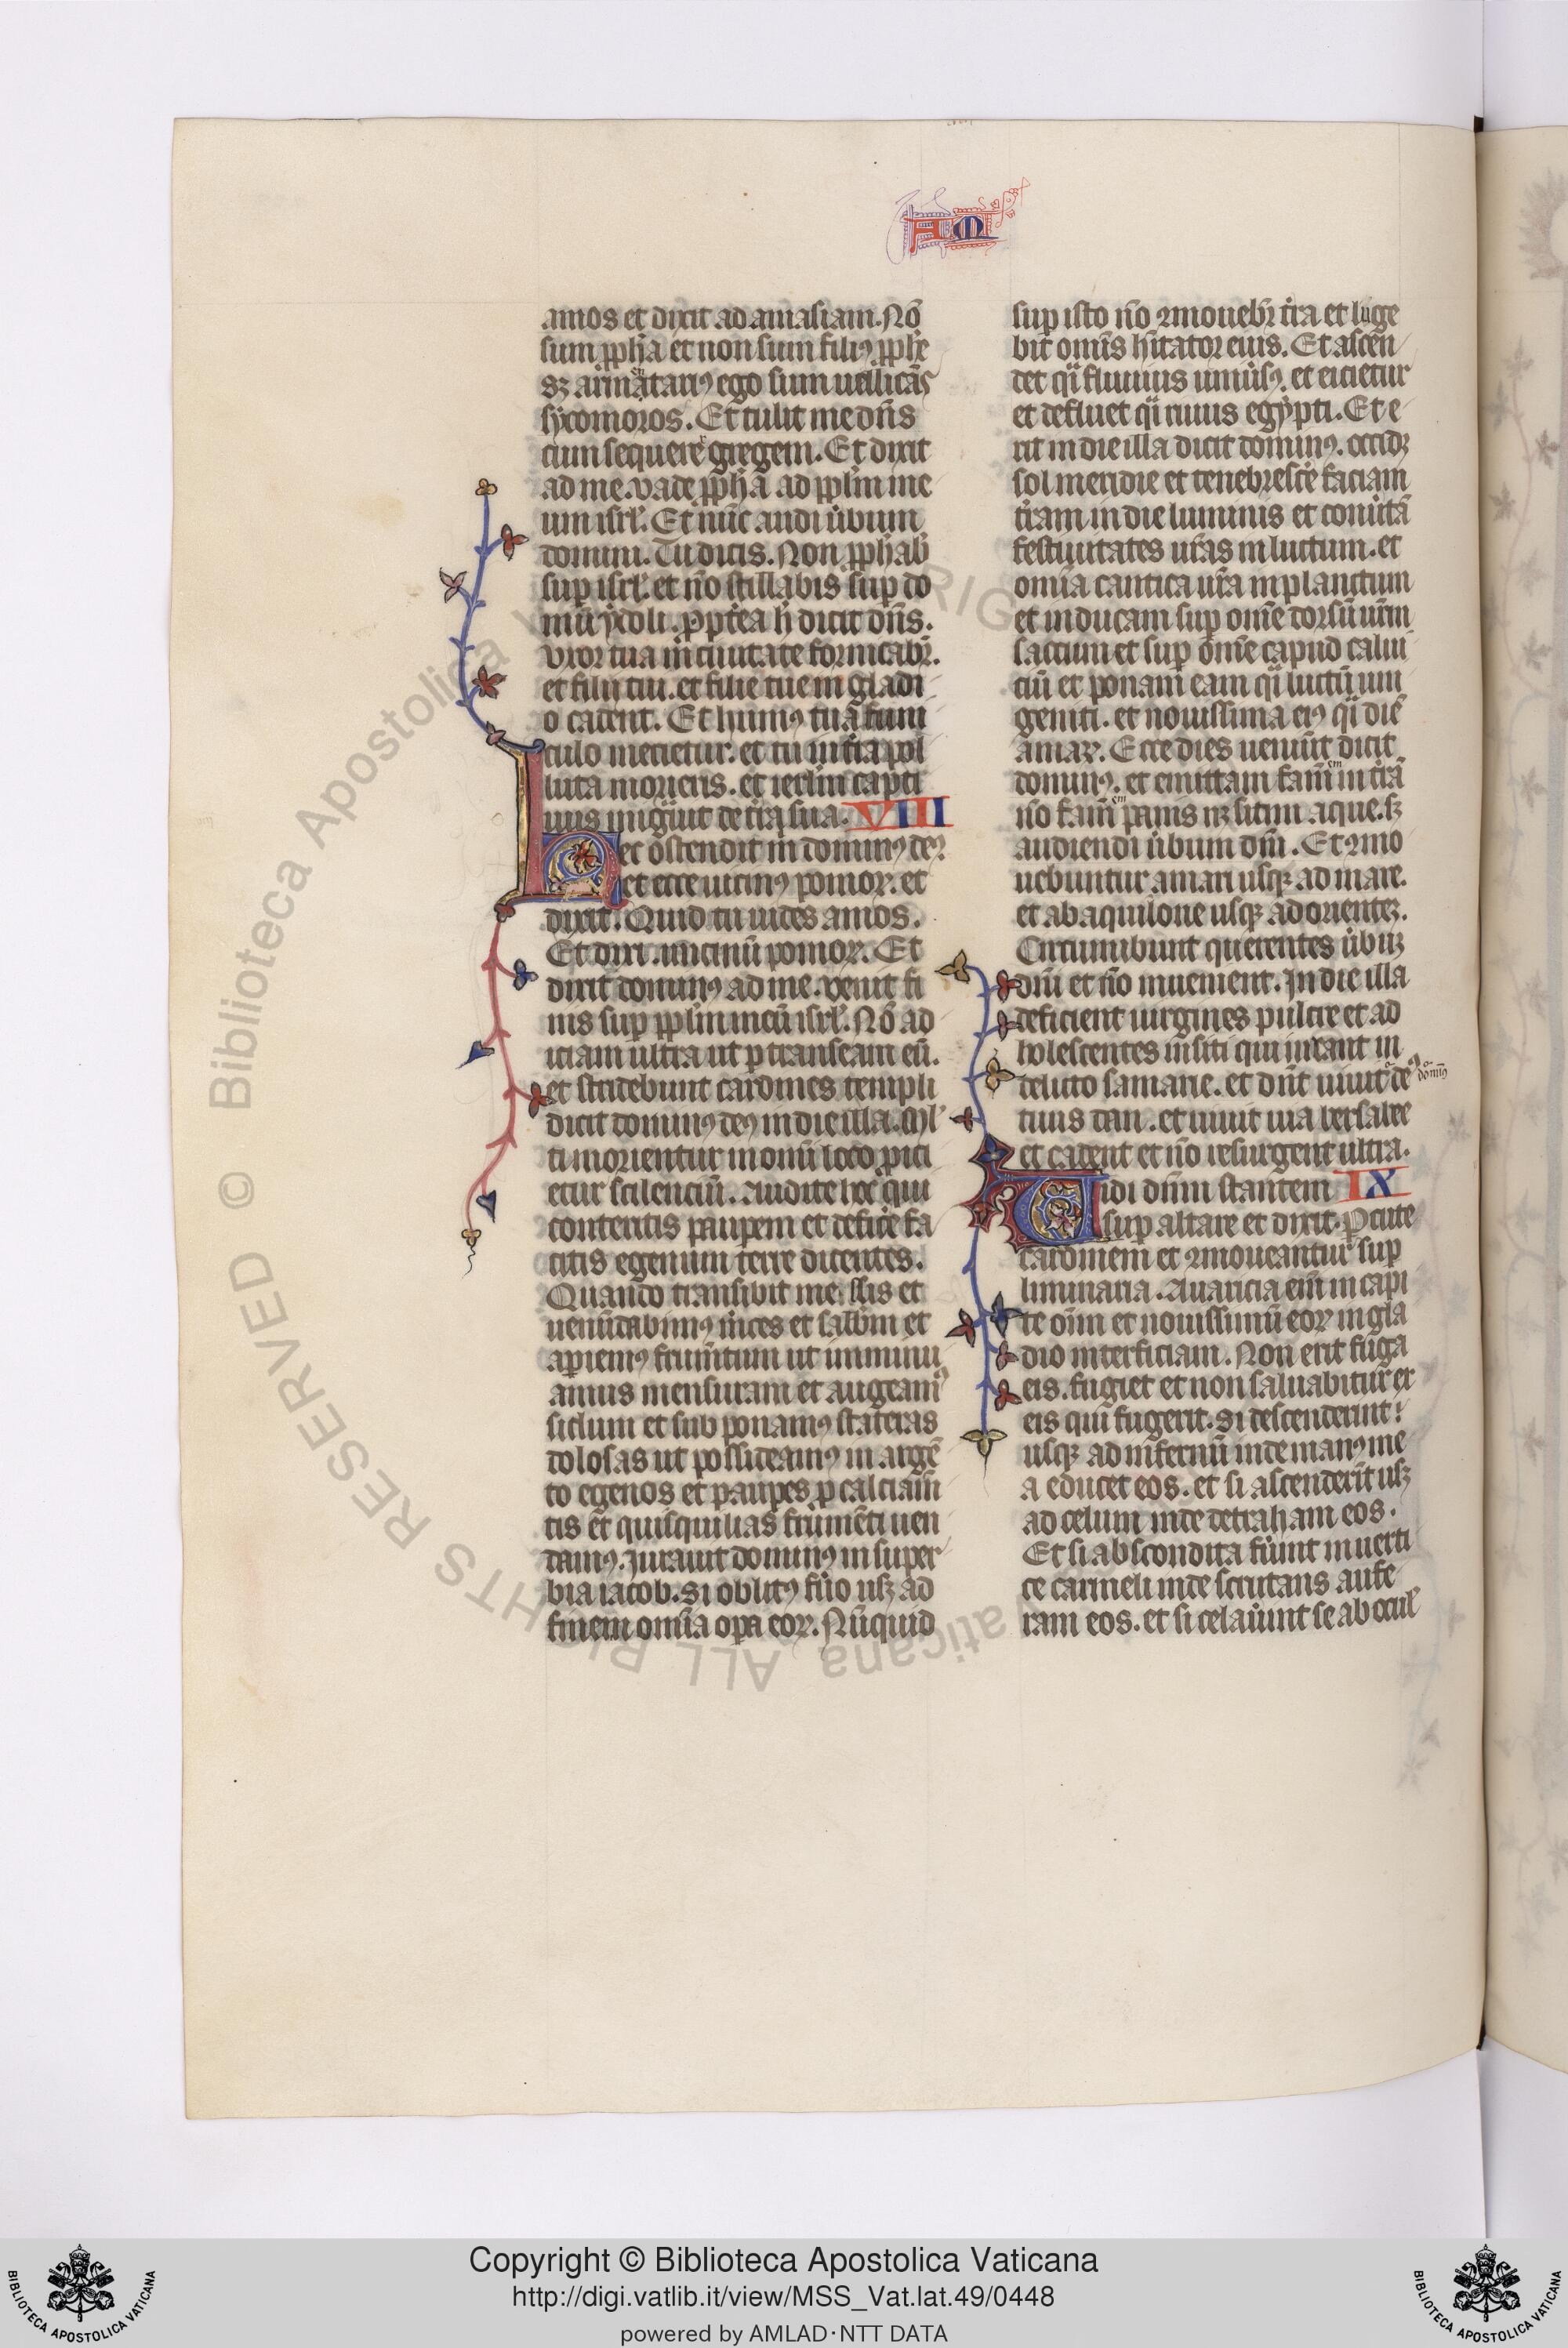 AM
amos et dixit ad amasiam. Nō
sum ꝓph̄a et non sum filiꝰ ꝓph̄e
sꝫ armātariꝰ ego sum uellicās
sycomoros. Et tulit me dn̄s
cum sequerer gregem. Et dixit
ad me. vade ꝓph̄a ad pp̄lm me
um isrl̄. Et nūc audi ūbum
domini. Tu dicis. Non ꝓph̄ab̄
suꝑ isrl̄. et nō stillabis suꝑ do
mū ydoli. ꝓpt̄ea h̄ dicit dn̄s.
vxor tua in ciuitate fornicabr̄.
et filii tui. et filie tue in gladi
o cadent. Et humꝰ tua funi
culo metietur. et tu in t̄ra pol
luta morieris. et ierl̄m capti
uus migͣuit de t̄ra sua. VIII
Hec ostendit m̄ dominꝰ deꝰ
et ecce uncinꝰ pomoꝝ. et
dixit. Quid tu uides amos.
Et dixi. uncinū pomoꝝ. Et
dixit dominꝰ ad me. venit fi
nis suꝑ pp̄lm meū isrl̄. Nō ad
iciam ultra ut ꝑ transeam eū.
et stridebunt cardines templi
dicit dominꝰ deꝰ in die illa. Ml̄
ti morientur in om̄i loco ꝓici
etur scilenciū. Audite hec qui
conteritis pauꝑem et defic̄e fa
citis egenum terre dicentes.
Quando transibit me ssis et
venūdabimꝰ m̄ces et sabb̄m et
aꝑiemꝰ frum̄tum ut imminu
amus mensuram et augeamꝰ
siclum et sub ponamꝰ stateras
dolosas ut possideamꝰ in argē
to egenos et pauꝑes ꝓ calciam̄
tis et quisquilias frumēti uen
damꝰ. Jurauit dominꝰ in super
bia iacob. si oblitꝰ fūo usqꝫ ad
finem om̄ia oꝑa eoꝝ. Nūquid
suꝑ isto nō ꝯmouebr̄ t̄ra et luge
bit omīs hītator eius. Et ascen
det qͣi fluuius uniūsꝰ. et eicietur
et defluet qͣi riuus egypti. Et e
rit in die illa dicit dominꝰ. occidꝫ
sol meridie et tenebresc̄e faciam
t̄ram in die luminis et conūtā
festiuitates ur̄as in luctum. et
om̄ia cantica ur̄a in planctum
et inducam suꝑ om̄e dorsū ur̄m
saccum et suꝑ om̄e capud calui
ciū et ponam eam qͣi luctū uni
geniti. et nouissima eiꝰ qͣi diē
amaꝝ. Ecce dies ueniūt dicit
dominꝰ. et emittam fam̄em in t̄rā
nō fam̄em panis neqꝫ sitim aque. sꝫ
audiendi ūbum dn̄i. Et ꝯmo
uebuntur a mari usqꝫ ad mare.
et ab aquilone usqꝫ ad orientē.
Circumibunt querentes ūbuꝫ
dn̄i et nō inuenient. In die illa
deficient uirgines pulcre et ad
holescentes in siti qui iurant in
delicto samarie. et dn̄t uiuit deꝰ
domꝰ
tuus dan. et uiuit uia bersabee
et cadent et nō resurgent ultra.
Vidi dn̄m stantem IX
suꝑ altare et dixit. ꝑcute
cardinem et ꝯmoueantur suꝑ
liminaria. Auaricia eim̄ in capi
te oīm et nouissimū eoꝝ in gla
dio interficiam. Non erit fuga
eis. fugiet et non saluabitur ex
eis qui fugerit. Si descenderint
usqꝫ ad infernū inde manꝰ me
a educet eos. et si ascenderīt usqꝫ
ad celum inde detraham eos.
Et si abscondita fūint in uerti
ce carmeli inde scrutans aufe
ram eos. et si celaūint se ab ocul̄
© Biblioteca Apostolica Vaticana ALL RIGHTS RESERVED
Copyright © Biblioteca Apostolica Vaticana
http://digi.vatlib.it/view/MSS_Vat.lat.49/0448
powered by AMLAD·NTT DATA
BIBLIOTECA APOSTOLICA VATICANA
BIBLIOTECA APOSTOLICA VATICANA